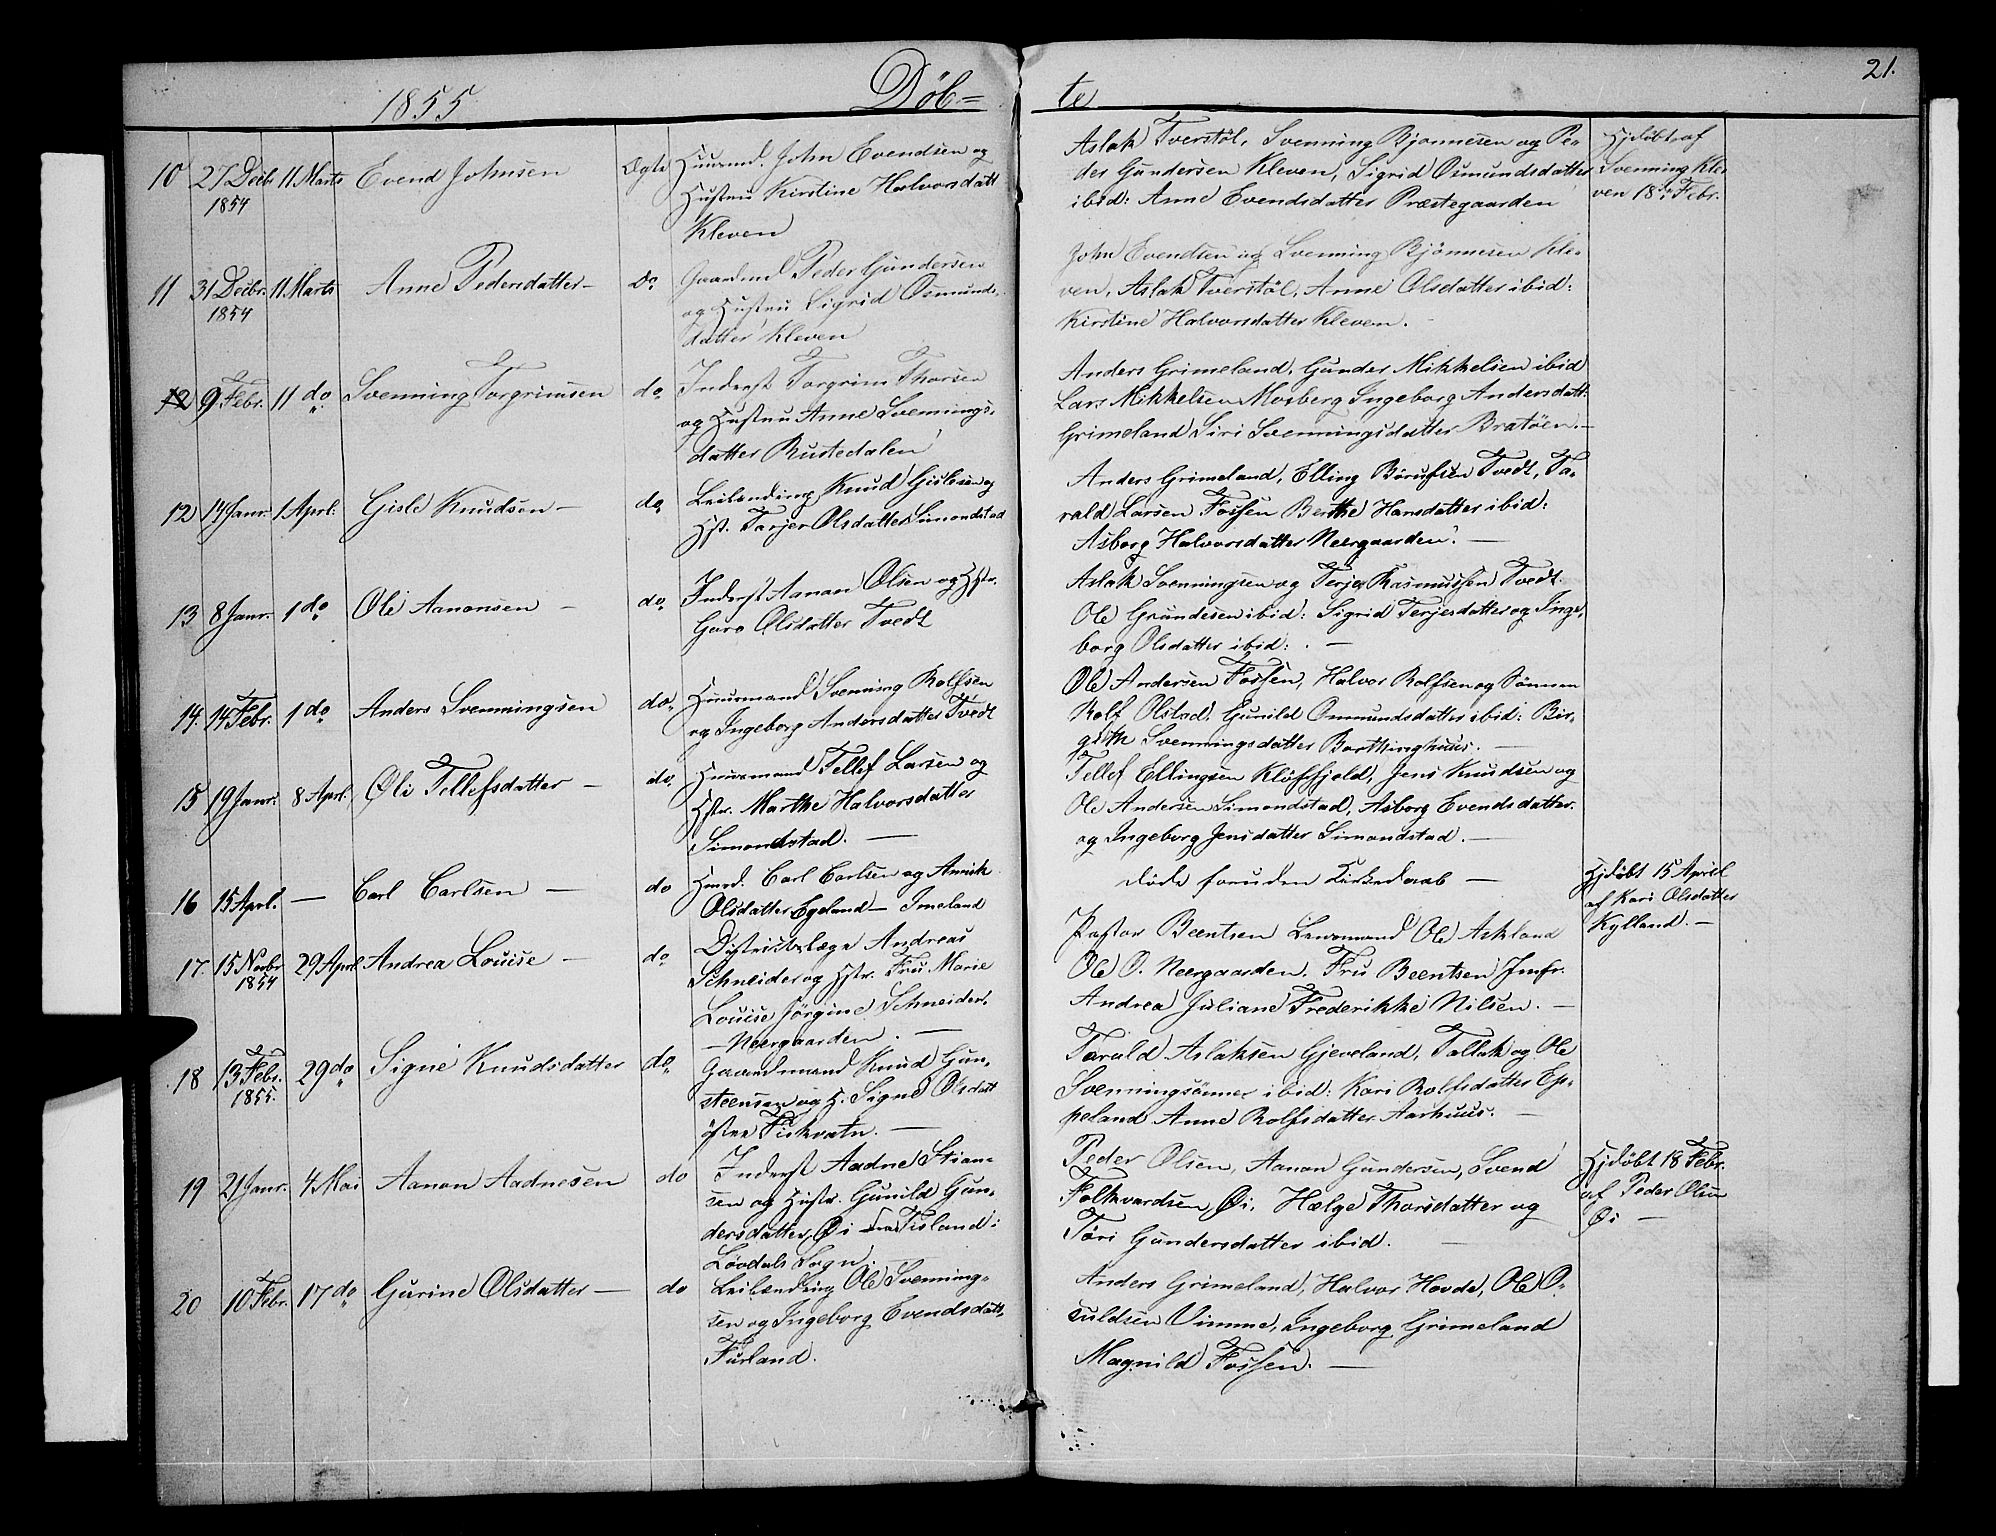 1855
Døb=
te
21.
10 27 Decb. 1854 11 Marts Evend Johnsen Ægte Huusmd. John Evendsen og
Hustru Kirstine Halvorsdatt
Kleven
Aslak Tverstøl, Svenning Bjonnesen og Pe-
der Gundersen Kleven, Sigrid Osmundsdatter
ibid: Anne Evendsdatter Præstegaarden
Hjdøbt af
Svenning Kle
ven 18de Febr.
11 31 Decbr. 1854 11 Marts Anne Pedersdatter - Do Gaardmd Peder Gundersen
og Hustru Sigrid Osmunds-
datter Kleven
John Evendsen og Svenning Bjönnesen Kle-
ven, Aslak Tverstöl, Anne Olsdatter ibid:
Kirstine Halvorsdatter Kleven. -
12 9 Febr. 11 do Svenning Torgrimsen do Inderst Torgrim Thorsen
og Hustru Anne Svennings-
datter Rustedalen
Anders Grimeland, Gunder Mikkelsen ibid
Lars Mikkelsen Mosberg Ingeborg Andersdatt:
Grimeland Siri Svenningsdatter Bratöen. -
12 14 Janr. 1 Aprl. Gisle Knudsen - do Leilænding Knud Gislesen og
Hst. Torjer Olsdatter Simonstad
Anders Grimeland, Elling Börufsen Tvedt, Ta-
rald Larsen Fossen Berthe Hansdatter ibid:
Asborg Halvorsdatter Neergaarden. -
13 8 Janr. 1 do Ole Aanonsen - do Inderst Aanon Olsen og Hstr.
Goro Olsdatter Tvedt
Aslak Svenningsen og Terje Rasmussen Tvedt.
Ole Grundesen ibid: Sigrid Terjesdatter og Inge-
borg Olsdatter ibid: -
14. 14 Febr. 1 do Anders Svenningsen do Huusmand Svenning Rolfsen
og Ingeborg Andersdatter Tvedt
Ole Andersen Fossen, Halvor Rolfsen og Sönnen
Rolf Olstad, Gunild Omundsdatter ibid: Bir-
gith Svenningsdatter Barthinghuus. -
15 19 Janr. 8 Aprl. Øli Tellefsdatter - do Huusmand Tellef Larsen og
Hstr. Marthe Halvorsdatter
Simonstad. -
Tellef Ellingsen Klöffjeld, Jens Knudsen og
Ole Andersen Simondstad, Asborg Evendsdatter
og Ingeborg Jensdatter Simondstad. -
16 15 Aprl. - Carl Carlsen - do Husmd. Carl Carlsen og Annik
Olsdatter Egeland - Imeland
døde foruden Kirkedaab -
Hjdøbt 15 April
af Kari Olsdatter
Kylland. -
17. 15 Novbr 1854 29 Aprl Andrea Louise - do Distriktslæge Andreas
Schneider og Hstr. Fru Marie
Louise Jörgine Schneider.
- Neergaarden. -
Pastor Beentsen Lensmand Ole Askland
Ole O. Neergaarden. Fru Beentsen Jmfr.
Andrea Juliane Frederikke Nilsen. -
18 13 Febr. 1855. 29 do Signe Knudsdatter do Gaardmand Knud Gun-
steensen og H. Signe Olsdatt
östre Fiskvatn. -
Tarald Aslaksen Gjeveland, Tallak og Ole
Svenningsönner ibid: Kari Rolfsdatter Ep-
peland Anne Rolfsdatter Aarhuus. -
19 21 Janr. 4 Mai Aanon Aadnesen do Inderst Aadne Stian-
sen og Hustr. Gunild Gun-
dersdatter, Øi fra Tisland i
Lövdals Sogn.
Peder Olsen, Aanon Gundersen, Svend
Folkvardsen, Øi, Hælge Thorsdatter og
Töri Gundersdatter ibid. -
Hjdöbt 18 Febr.
af Peder Olsen
Øi -
20 10 Febr. 17 do Gurine Olsdatter - do Leilænding Ole Svenning-
sen og Ingeborg Evendsdatt.
Furland.
Anders Grimeland, Halvor Hovde, Ole O-
suldsen Vimme, Ingeborg Grimeland
Magnild Fossen. -